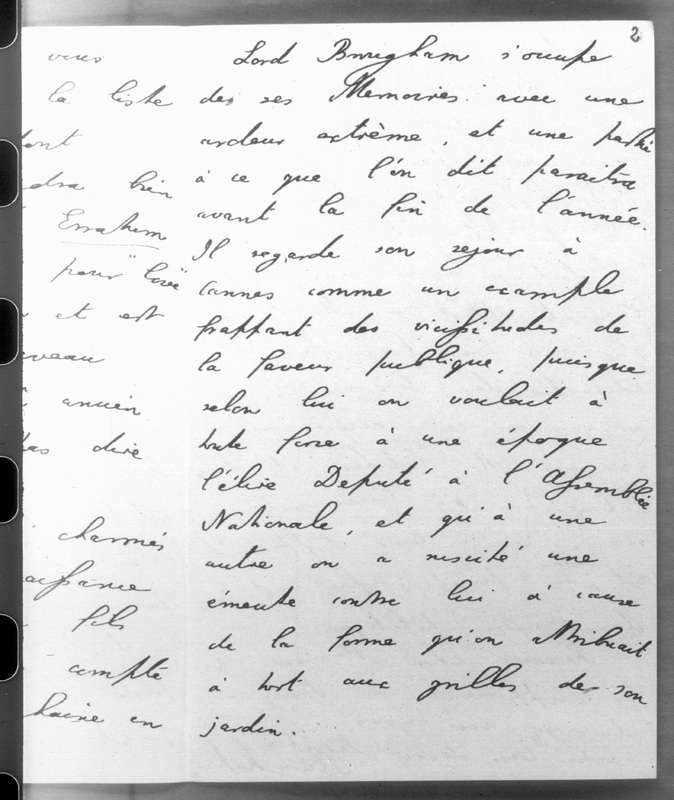 2
vous
la liste
dont
dra bien
Erratum
pour "
et est
veau
ancien
pas dire
charmés
aissance
fils
compté
en
Lord Brougham s'occupe
de ses Memoires avec une
ardeur extrème, et une partie
à ce que l'on dit paraitra
avant la fin de l'année.
Il regarde son sejour à
Cannes comme un example
frappant des vicissitudes de
la faveur publique, puisque
selon lui on voulait à
toute force à une époque
l'élire Deputé à l'Assemblée
Nationale, et qu'à une
autre on a suscité une
émeute contre lui à cause
de la forme qu'on attribuait
à tort aux grilles de son
jardin.